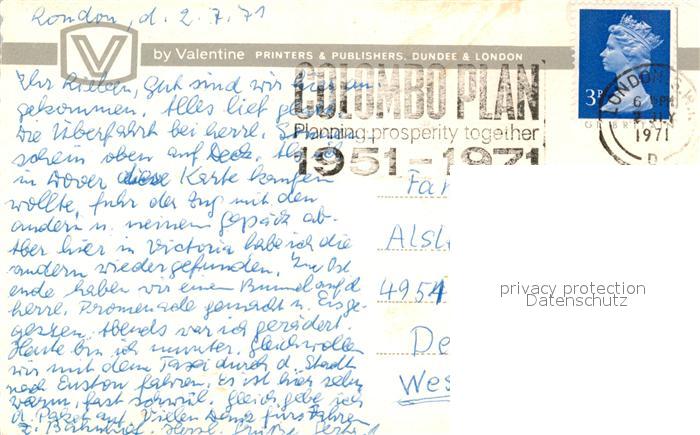 London, d. 2.7.71
by Valentine PRINTERS & PUBLISHERS, DUNDEE & LONDON
Ihr Lieben, gut sind wir
gekommen. Alles lief
Die Überfahrt bei herrl.
schein oben auf Deck. Als ich
in Dover diese Karte kaufen
wollte, fuhr der Zug mit den
andern u. meinem Gepäck ab.
Aber hier in Victoria habe ich die
andern wiedergefunden. In Ost
ende haben wir einen Bummel auf d
herrl. Promenade gemacht u. Eis ge-
gessen. Abends war ich gerädert.
Heute bin ich munter. Gleich wollen
wir mit dem Taxi durch d. Stadt
nach Euston fahren. Es ist hier sehr
warm, fast schwül. Gleich gebe ich
d. Paket auf. Vielen Dank fürs Fahren
z. Bahnhof. Herzl. Grüße
COLOMBO PLAN
Planning prosperity together
1951-1971
3P
LONDON
6 PM
2 JLY
1971
D
Fa
Alsl
4954
De
Wes
privacy protection
Datenschutz